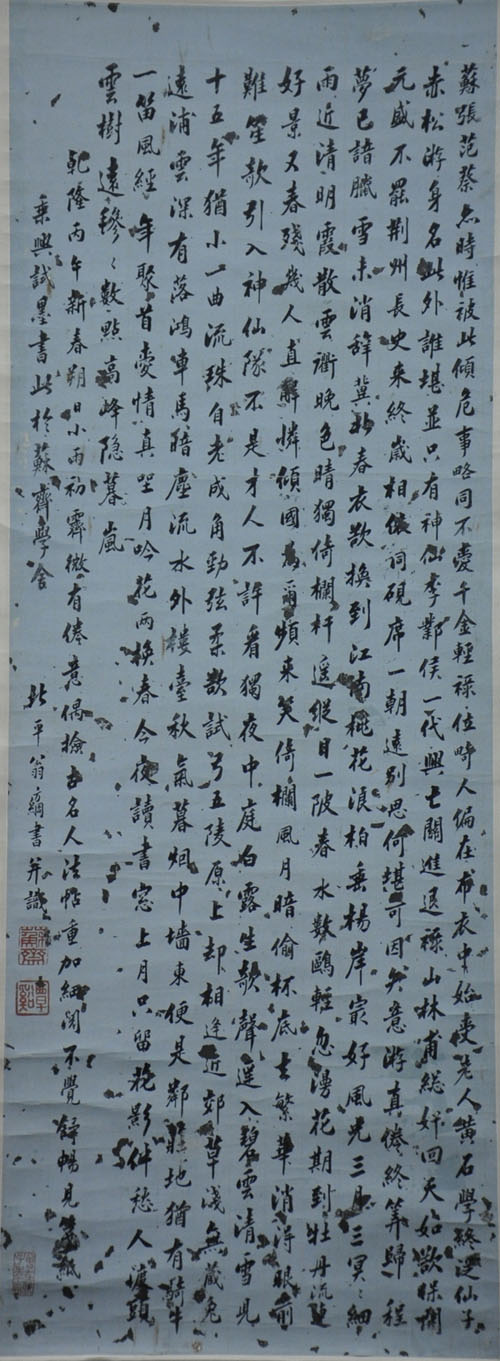 蘇張范蔡亦時惟被此傾危事略同不愛千金輕祿位時人偏在布衣中始受老人黃石學終從仙子
赤松游身名此外誰堪並只有神仙李鄴侯一代興亡關進退祿山林甫總奸回天如欲保開
元盛不罷荊州長史來終歲相依詞硯席一朝遠別思何堪可因失意游真倦終算歸程
夢已諳臘雪未消辭冀北春衣欲換到江南桃花浪柏垂楊岸最好風光三月三冥冥細
雨近清明霞散雲衢晚色晴獨倚欄杆遙縱目一陂春水數鷗輕忽漫花期到牡丹流連
好景又春殘幾人直解憐傾國為爾頻來笑倚欄風月暗偷杯底去繁華消得眼前
難笙歌引入神仙隊不是才人不許看獨夜中庭白露生歌聲遥入碧雲清雪兒
十五年猶小一曲流珠自老成角勁弦柔欲試弓五陵原上却相逢近郊草淺無藏兔
遠浦雲深有落鴻車馬暗塵流水外樓臺秋氣暮烟中墻東便是鄰莊地猶有騎牛
一笛風經年聚首愛情真望月吟花兩換春今夜讀書窓上月只留花影伴愁人隴頭
雲樹遠穆穆數點高峰隱暮嵐
乾隆丙午新春朔日小雨初霽微有倦意偶撿古名人法帖重加細閱不覺舒暢見箋紙
乘興試墨書此於蘇齋學舍
北平翁方綱書并識